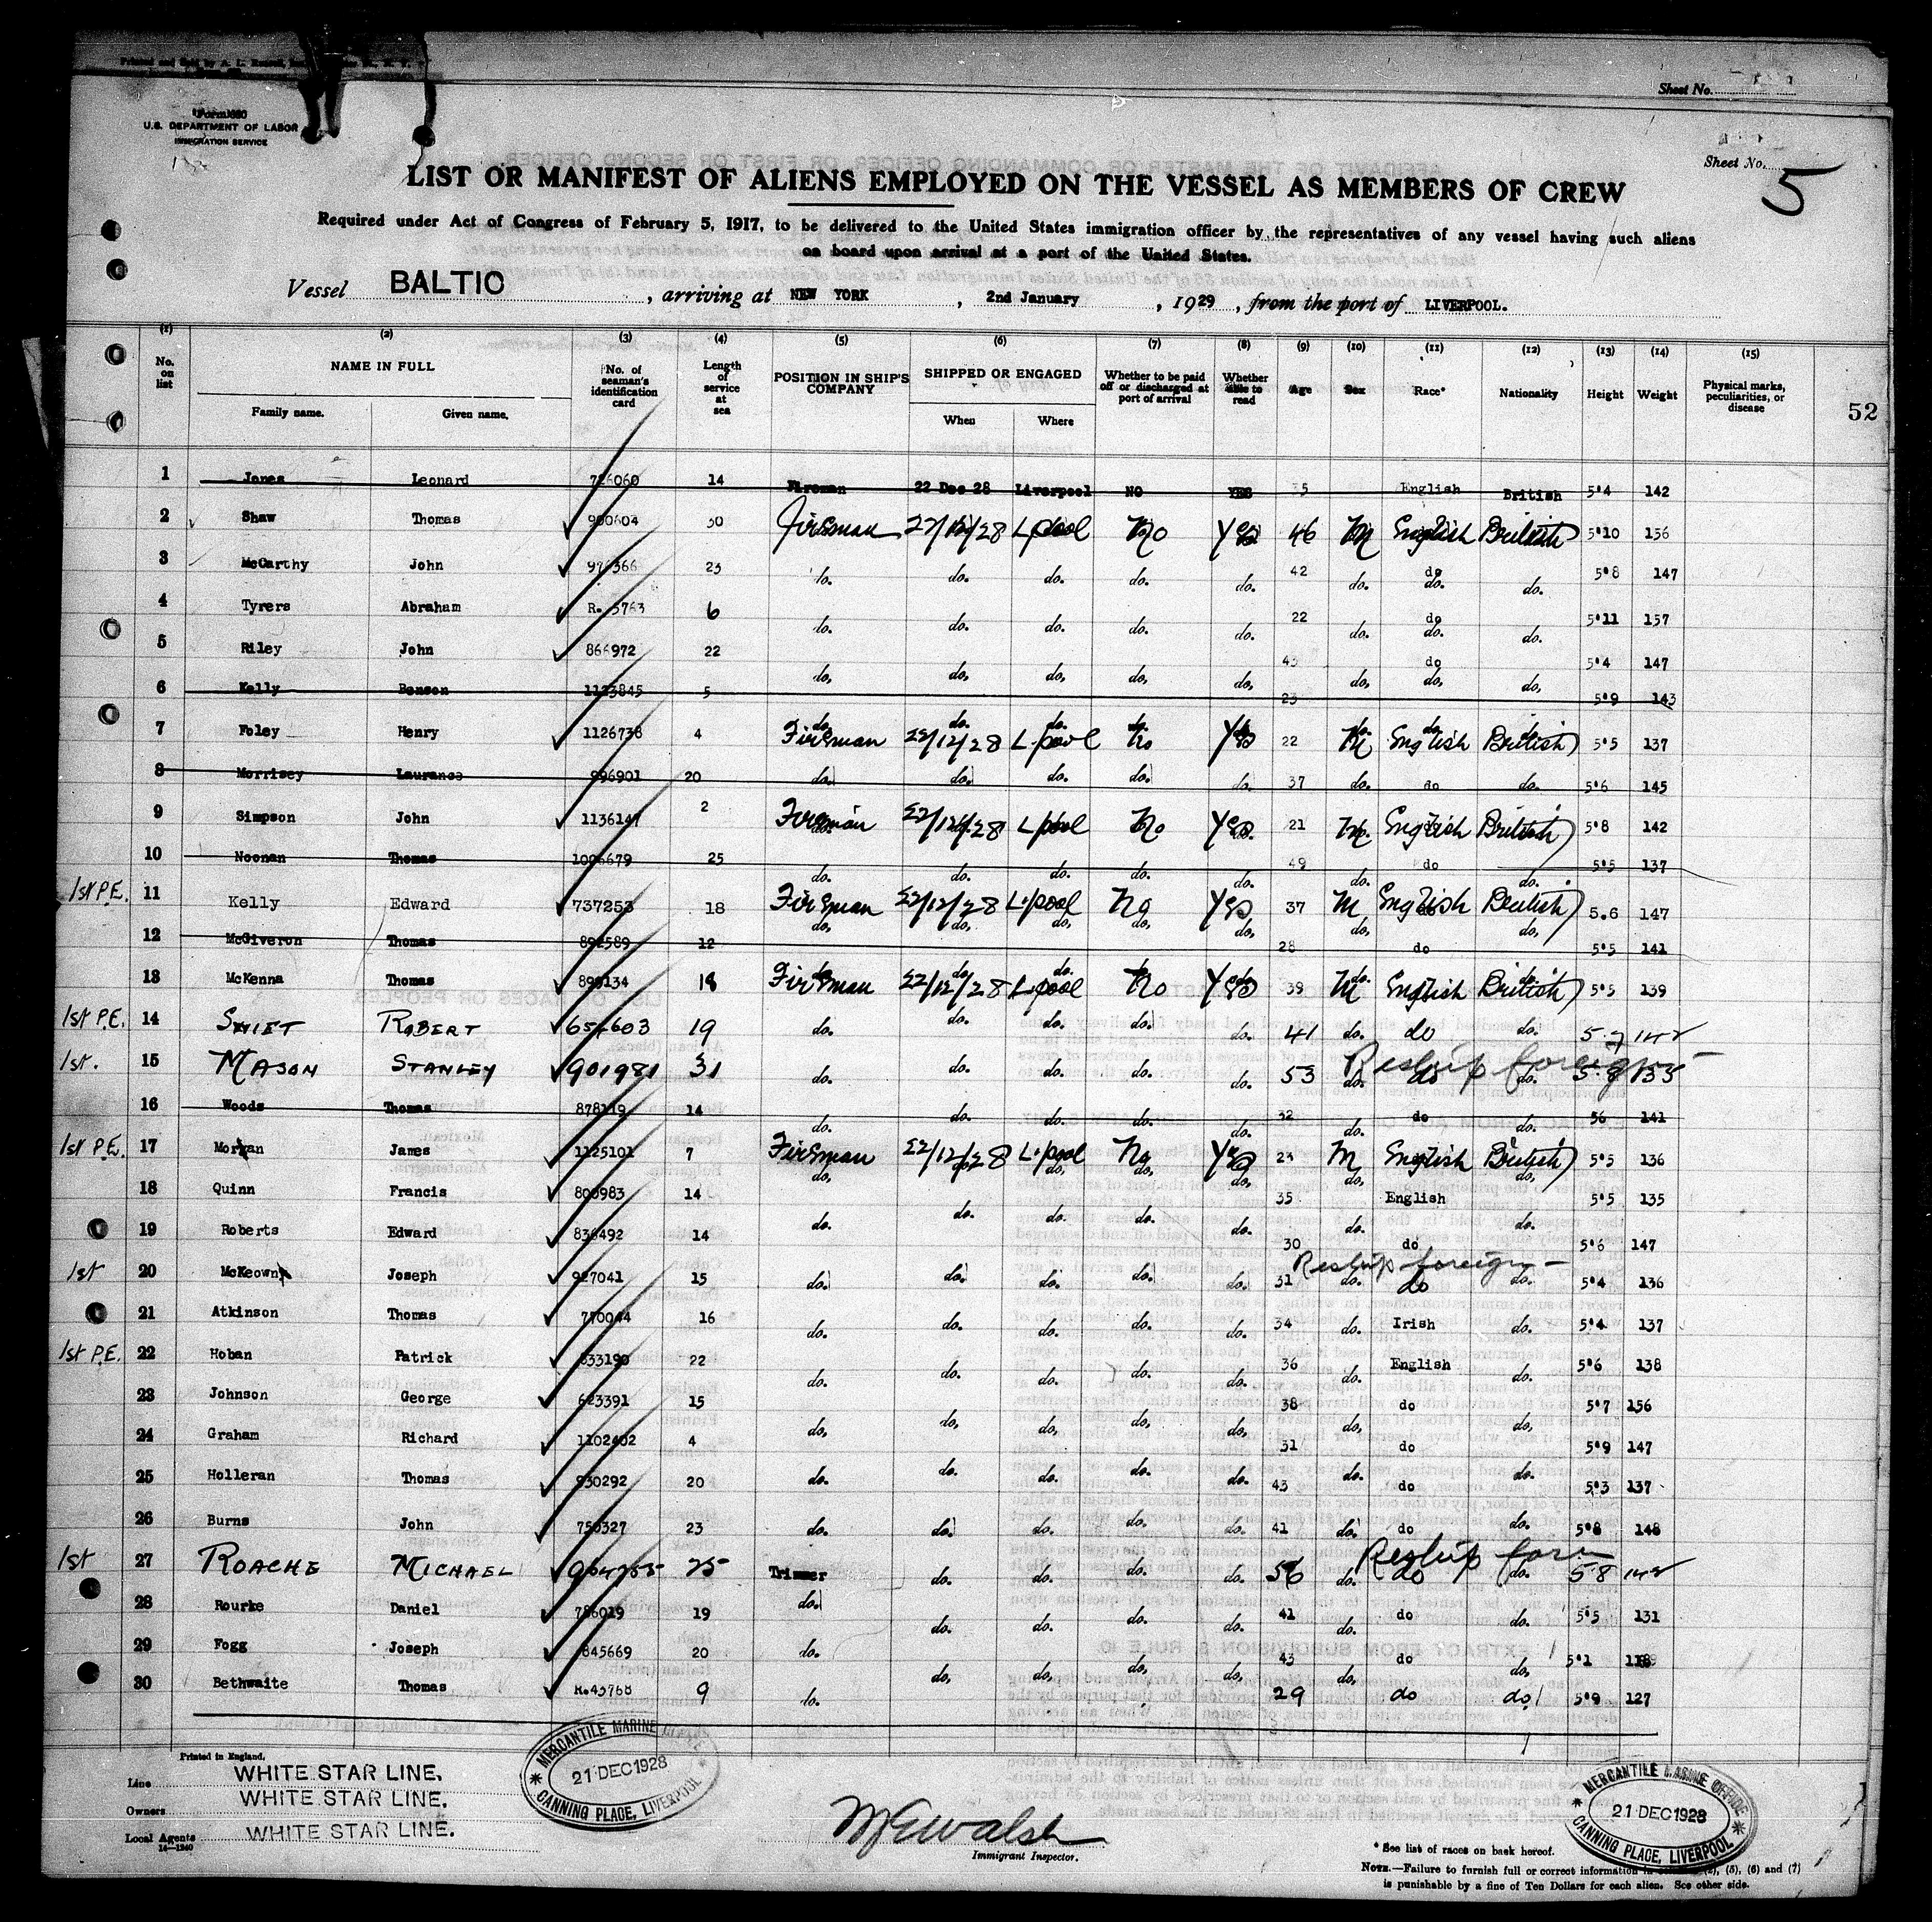 Sheet No.
Form 680
U.S. DEPARTMENT OF LABOR
IMMIGRATION SERVICE
Sheet No. 5
LIST OR MANIFEST OF ALIENS EMPLOYED ON THE VESSEL AS MEMBERS OF CREW
Required under Act of Congress of February 5, 1917, to be delivered to the United States immigration officer by the representatives of any vessel having such aliens
on board upon arrival at a port of the United States.
Vessel BALTIC, arriving at NEW YORK, 2nd January, 1929, from the port of LIVERPOOL.
(1) (2) (3) (4) (5) (6) (7) (8) (9) (10) (11) (12) (13) (14) (15)
No. on list NAME IN FULL Family name. Given name. No. of seaman's identification card Length of service at sea POSITION IN SHIP'S COMPANY SHIPPED OR ENGAGED When Where Whether to be paid off or discharged at port of arrival Whether able to read Age Sex Race* Nationality Height Weight Physical marks, peculiarities, or disease
52
1 Jones Leonard 726060 14 Fireman 22 Dec 28 Liverpool NO YES 35 English British 5'4 142
2 Shaw Thomas 900604 30 Fireman 22/12/28 L'pool No Yes 46 M English British 5'10 156
3 McCarthy John 23 do. do. do. do. do. 42 do. do do. do. 5'8 147
4 Tyrers Abraham R. 5763 6 do. do. do. do. do. 22 do. do do. do. 5'11 157
5 Riley John 866972 22 do. do. do. do. do. 43 do. do do. do. 5'4 147
6 Kelly Benson 1123845 5 23 5'9 143
7 Foley Henry 1126738 4 Fireman 22/12/28 L'pool No Yes 22 M English British 5'5 137
8 Morrisey Laurance 996901 20 do. do. do. do. do. 37 do. do do. 5'6 145
9 Simpson John 1136147 2 Fireman 22/12/28 L'pool No Yes 21 M English British 5'8 142
10 Noonan Thomas 1006679 25 do. do. do. do. do. 49 do. do do. 5'5 137
1st P.E. 11 Kelly Edward 737253 18 Fireman 22/12/28 L'pool No Yes 37 M English British 5.6 147
12 McGiveron Thomas 892589 12 do. do. do. do. do. 28 do. do do. 5'5 141
13 McKenna Thomas 18 Fireman 22/12/28 L'pool No Yes 39 M English British 5'5 139
1st P.E. 14 SWIFT ROBERT 19 do. do. do. do. do. 41 do. do do. 5-7 142
1st. 15 MASON STANLEY 901981 31 do. do. do. do. do. 53 do. do do. 153 Reship foreign
16 Woods Thomas 878119 14 do. do. do. do. do. 32 do. do do. 56 141
1st P.E. 17 Morgan James 1125101 7 Fireman 22/12/28 L'pool No Yes 23 M English British 5'5 136
18 Quinn Francis 800983 14 do. do. do. do. do. 35 do. English do. 5'5 135
19 Roberts Edward 836492 14 do. do. do. do. do. 30 do. do do. 5'6 147
1st 20 McKeown Joseph 927041 15 do. do. do. do. do. 31 do. do do. 5'4 136 Reship foreign
21 Atkinson Thomas 770044 16 do. do. do. do. do. 34 do. Irish do. 5'4 137
1st P.E. 22 Hoban Patrick 833190 22 do. do. do. do. do. 36 do. English do. 5'6 138
23 Johnson George 623391 15 do. do. do. do. do. 38 do. do do. 5'7 156
24 Graham Richard 1102402 4 do. do. do. do. do. 31 do. do do. 5'9 147
25 Holleran Thomas 930292 20 do. do. do. do. do. 43 do. do do. 5'3 137
26 Burns John 750327 23 do. do. do. do. do. 41 do. do do. 5'8 148
1st 27 ROACHE MICHAEL 25 Trimmer do. do. do. do. 56 do. do do. 5'8 142 Reship
28 Rourke Daniel 786019 19 do. do. do. do. do. 41 do. do do. 5'5 131
29 Fogg Joseph 845669 20 do. do. do. do. do. 43 do. do do. 5'1
30 Bethwaite Thomas R.45768 9 do. 29 do do 5'9 127
Printed in England.
Line WHITE STAR LINE.
Owners WHITE STAR LINE.
Local Agents WHITE STAR LINE.
14—1240
MERCANTILE MARINE OFFICE
21 DEC 1928
CANNING PLACE, LIVERPOOL
Immigrant Inspector.
MERCANTILE MARINE OFFICE
21 DEC 1928
CANNING PLACE, LIVERPOOL
* See list of races on back hereof.
NOTE.—Failure to furnish full or correct information in (5), (6) and (7)
is punishable by a fine of Ten Dollars for each alien. See other side.